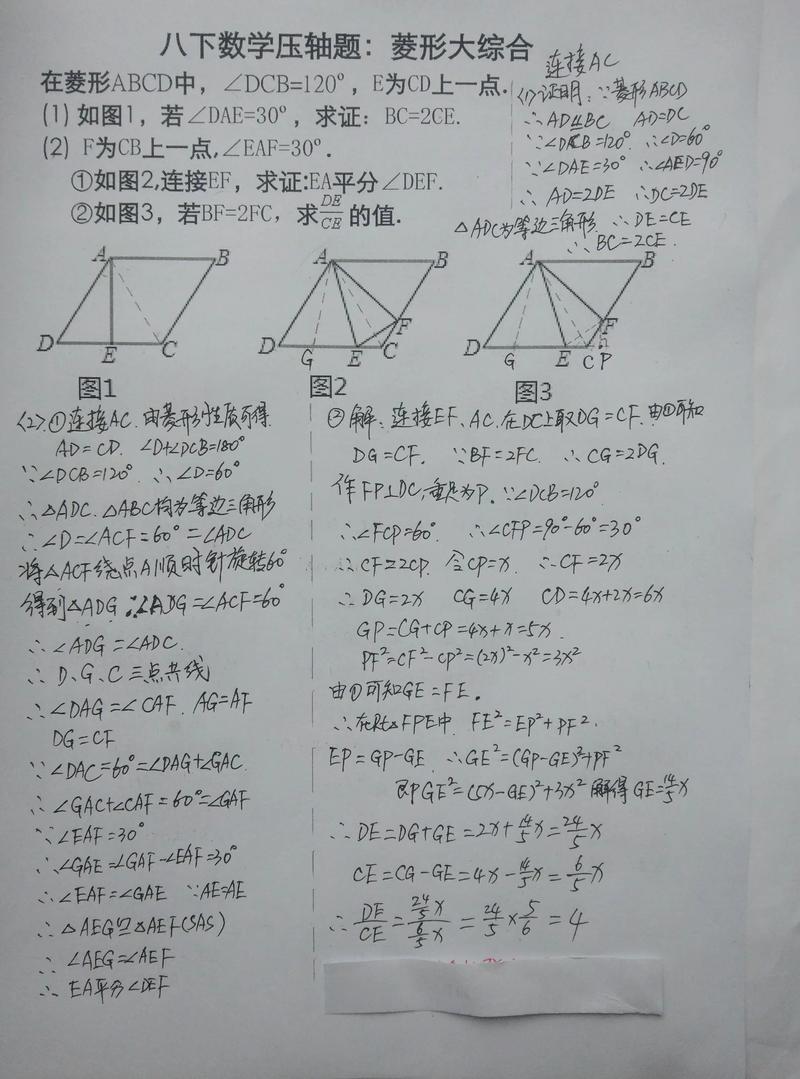 八下数学压轴题：菱形大综合
在菱形ABCD中，∠DCB=120°，E为CD上一点.
(1) 如图1，若∠DAE=30°，求证：BC=2CE.
(2) F为CB上一点,∠EAF=30°.
①如图2,连接EF，求证:EA平分∠DEF.
②如图3，若BF=2FC，求DE/CE的值.
连接AC
(1)证明：∵菱形ABCD
∴AD∥BC AD=DC
∵∠DCB=120° ∴∠D=60°
∵∠DAE=30° ∴∠AED=90°
∴AD=2DE ∴DC=2DE
△ADC为等边三角形 ∴DE=CE
∴BC=2CE.
A B D E C
图1
A B D G E C F
图2
A B D G E C P F
图3
(2)①连接AC.由菱形性质可得.
AD=CD. ∠D+∠DCB=180°
∵∠DCB=120° ∴∠D=60°
∴△ADC.△ABC均为等边三角形
∴∠D=∠ACF=60°=∠ADC
将△ACF绕点A顺时针旋转60°
得到△ADG ∴∠ADG=∠ACF=60°
∴∠ADG=∠ADC.
∴D、G、C三点共线
∴∠DAG=∠CAF. AG=AF
DG=CF
∵∠DAC=60°=∠DAG+∠GAC.
∴∠GAC+∠CAF=60°=∠GAF
∵∠EAF=30°
∴∠GAE=∠GAF-∠EAF=30°
∴∠EAF=∠GAE ∵AE=AE
∴△AEG≌△AEF(SAS)
∴∠AEG=∠AEF
∴EA平分∠DEF
②解：连接EF、AC.在DC上取DG=CF.由①可知
DG=CF. ∵BF=2FC. ∴CG=2DG.
作FP⊥DC,垂足为P. ∵∠DCB=120°
∴∠FCP=60° ∴∠CFP=90°-60°=30°
∴CF=2CP. 令CP=x. ∴CF=2x
∴DG=2x CG=4x CD=4x+2x=6x
GP=CG+CP=4x+x=5x.
PF²=CF²-CP²=(2x)²-x²=3x²
由①可知GE=FE.
∴在Rt△FPE中. FE²=EP²+PF².
EP=GP-GE ∴GE²=(GP-GE)²+PF²
即GE²=(5x-GE)²+3x² 解得GE=14/5x
∴DE=DG+GE=2x+14/5x=24/5x
CE=CG-GE=4x-14/5x=6/5x
∴DE/CE=24/5x/6/5x=24/5×5/6=4